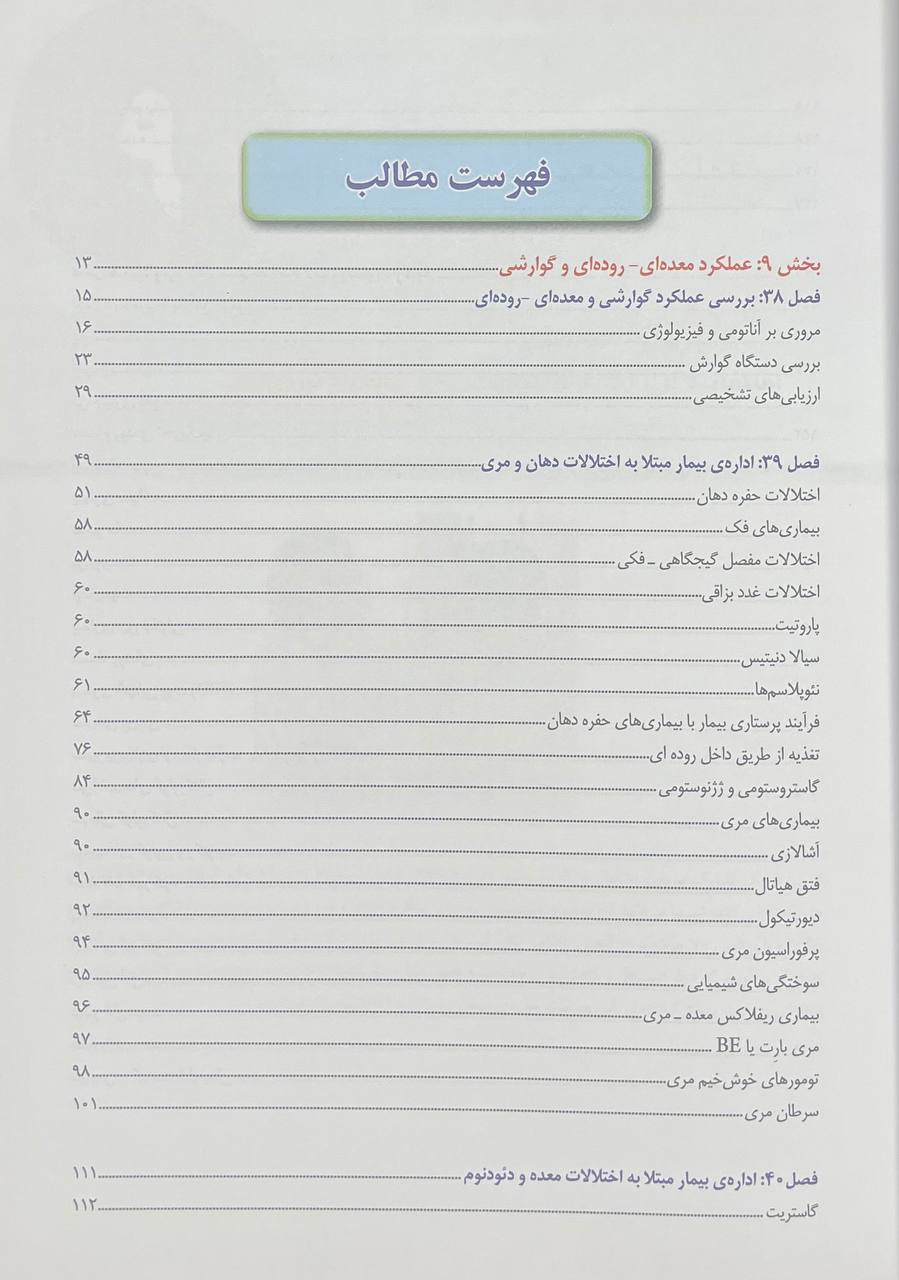 فهرست مطالب
بخش ۹: عملکرد معده‌ای- روده‌ای و گوارشی ۱۳
فصل ۳۸: بررسی عملکرد گوارشی و معده‌ای -روده‌ای ۱۵
مروری بر آناتومی و فیزیولوژی ۱۶
بررسی دستگاه گوارش ۲۳
ارزیابی‌های تشخیصی ۲۹
فصل ۳۹: اداره‌ی بیمار مبتلا به اختلالات دهان و مری ۴۹
اختلالات حفره دهان ۵۱
بیماری‌های فک ۵۸
اختلالات مفصل گیجگاهی ـ فکی ۵۸
اختلالات غدد بزاقی ۶۰
پاروتیت ۶۰
سیالا دنیتیس ۶۰
نئوپلاسم‌ها ۶۱
فرآیند پرستاری بیمار با بیماری‌های حفره دهان ۶۴
تغذیه از طریق داخل روده ای ۷۶
گاستروستومی و ژژنوستومی ۸۴
بیماری‌های مری ۹۰
آشالازی ۹۰
فتق هیاتال ۹۱
دیورتیکول ۹۲
پرفوراسیون مری ۹۴
سوختگی‌های شیمیایی ۹۵
بیماری ریفلاکس معده ـ مری ۹۶
مری بارِت یا BE ۹۷
تومورهای خوش‌خیم مری ۹۸
سرطان مری ۱۰۱
فصل ۴۰: اداره‌ی بیمار مبتلا به اختلالات معده و دئودنوم ۱۱۱
گاستریت ۱۱۲